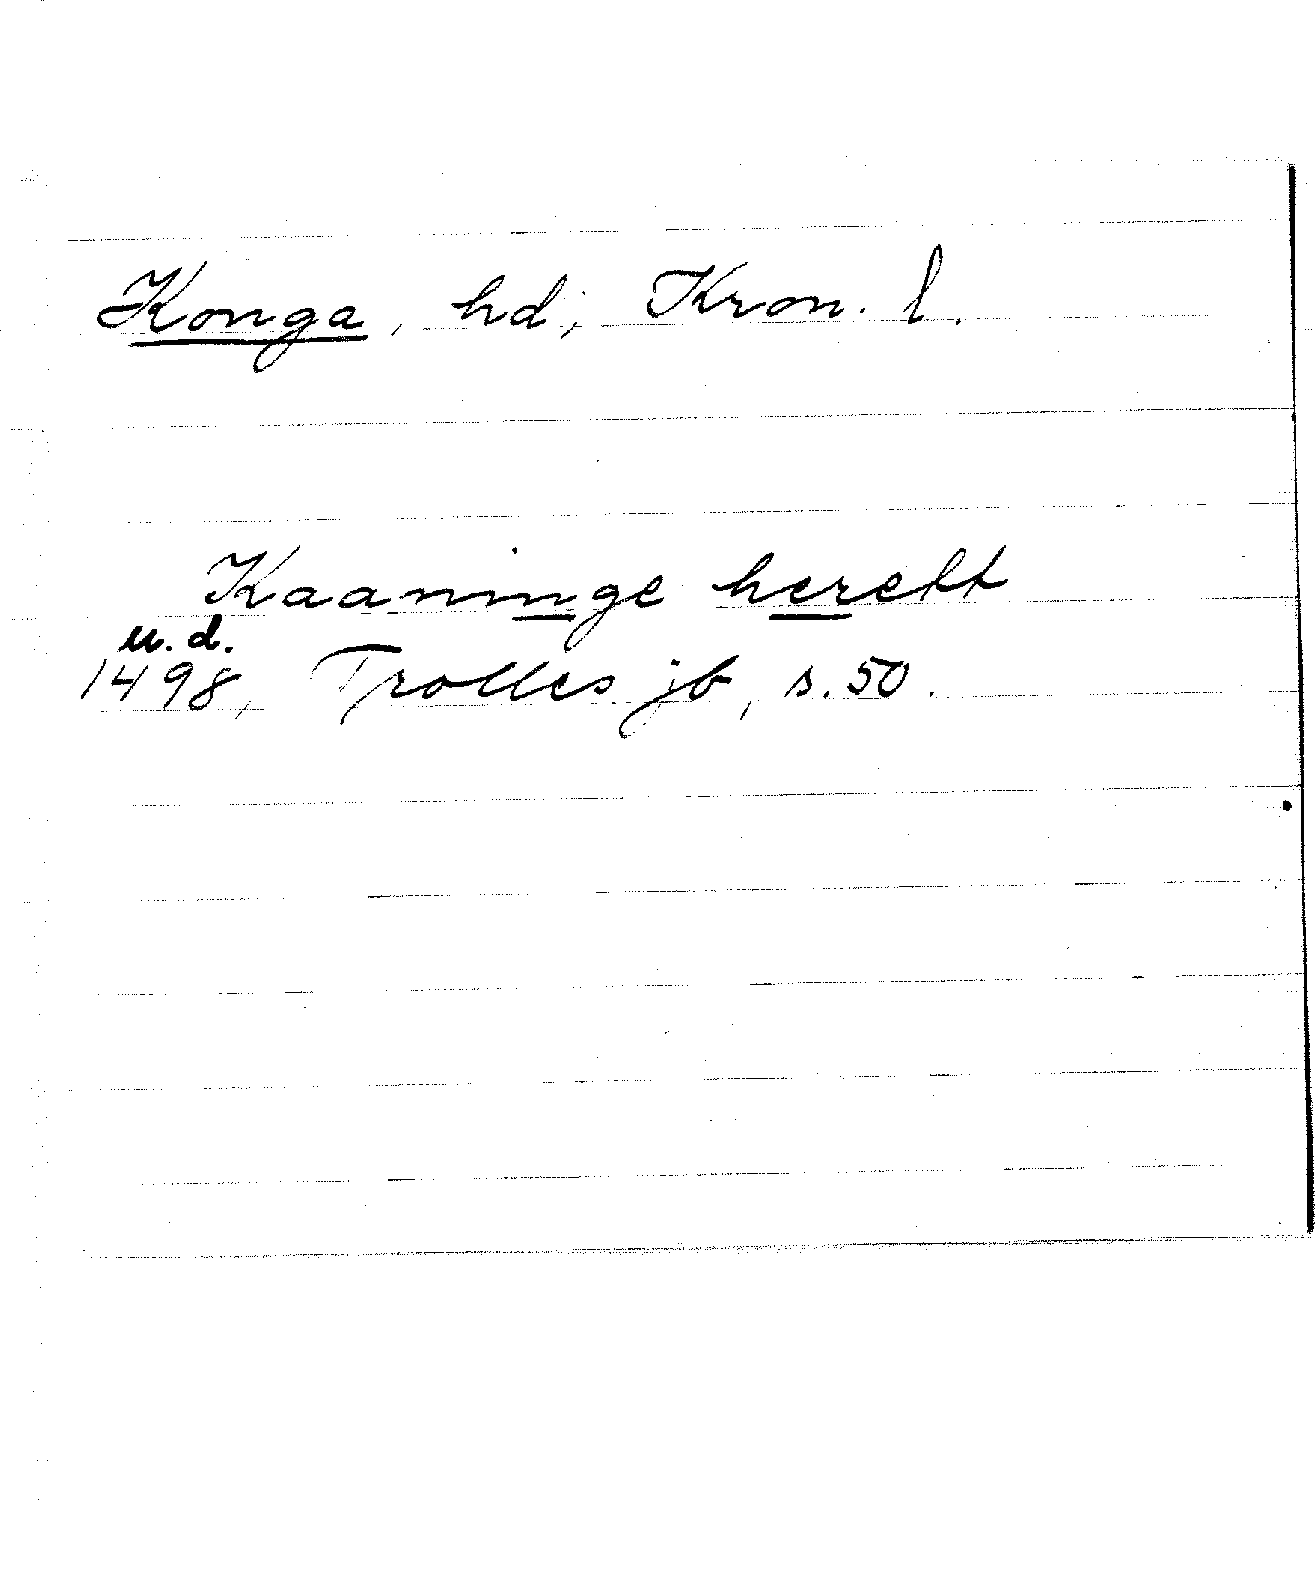 Konga, hd; Kron. l.
Kaaninge herett
u. d.
1498, Trolles jb, s. 50.